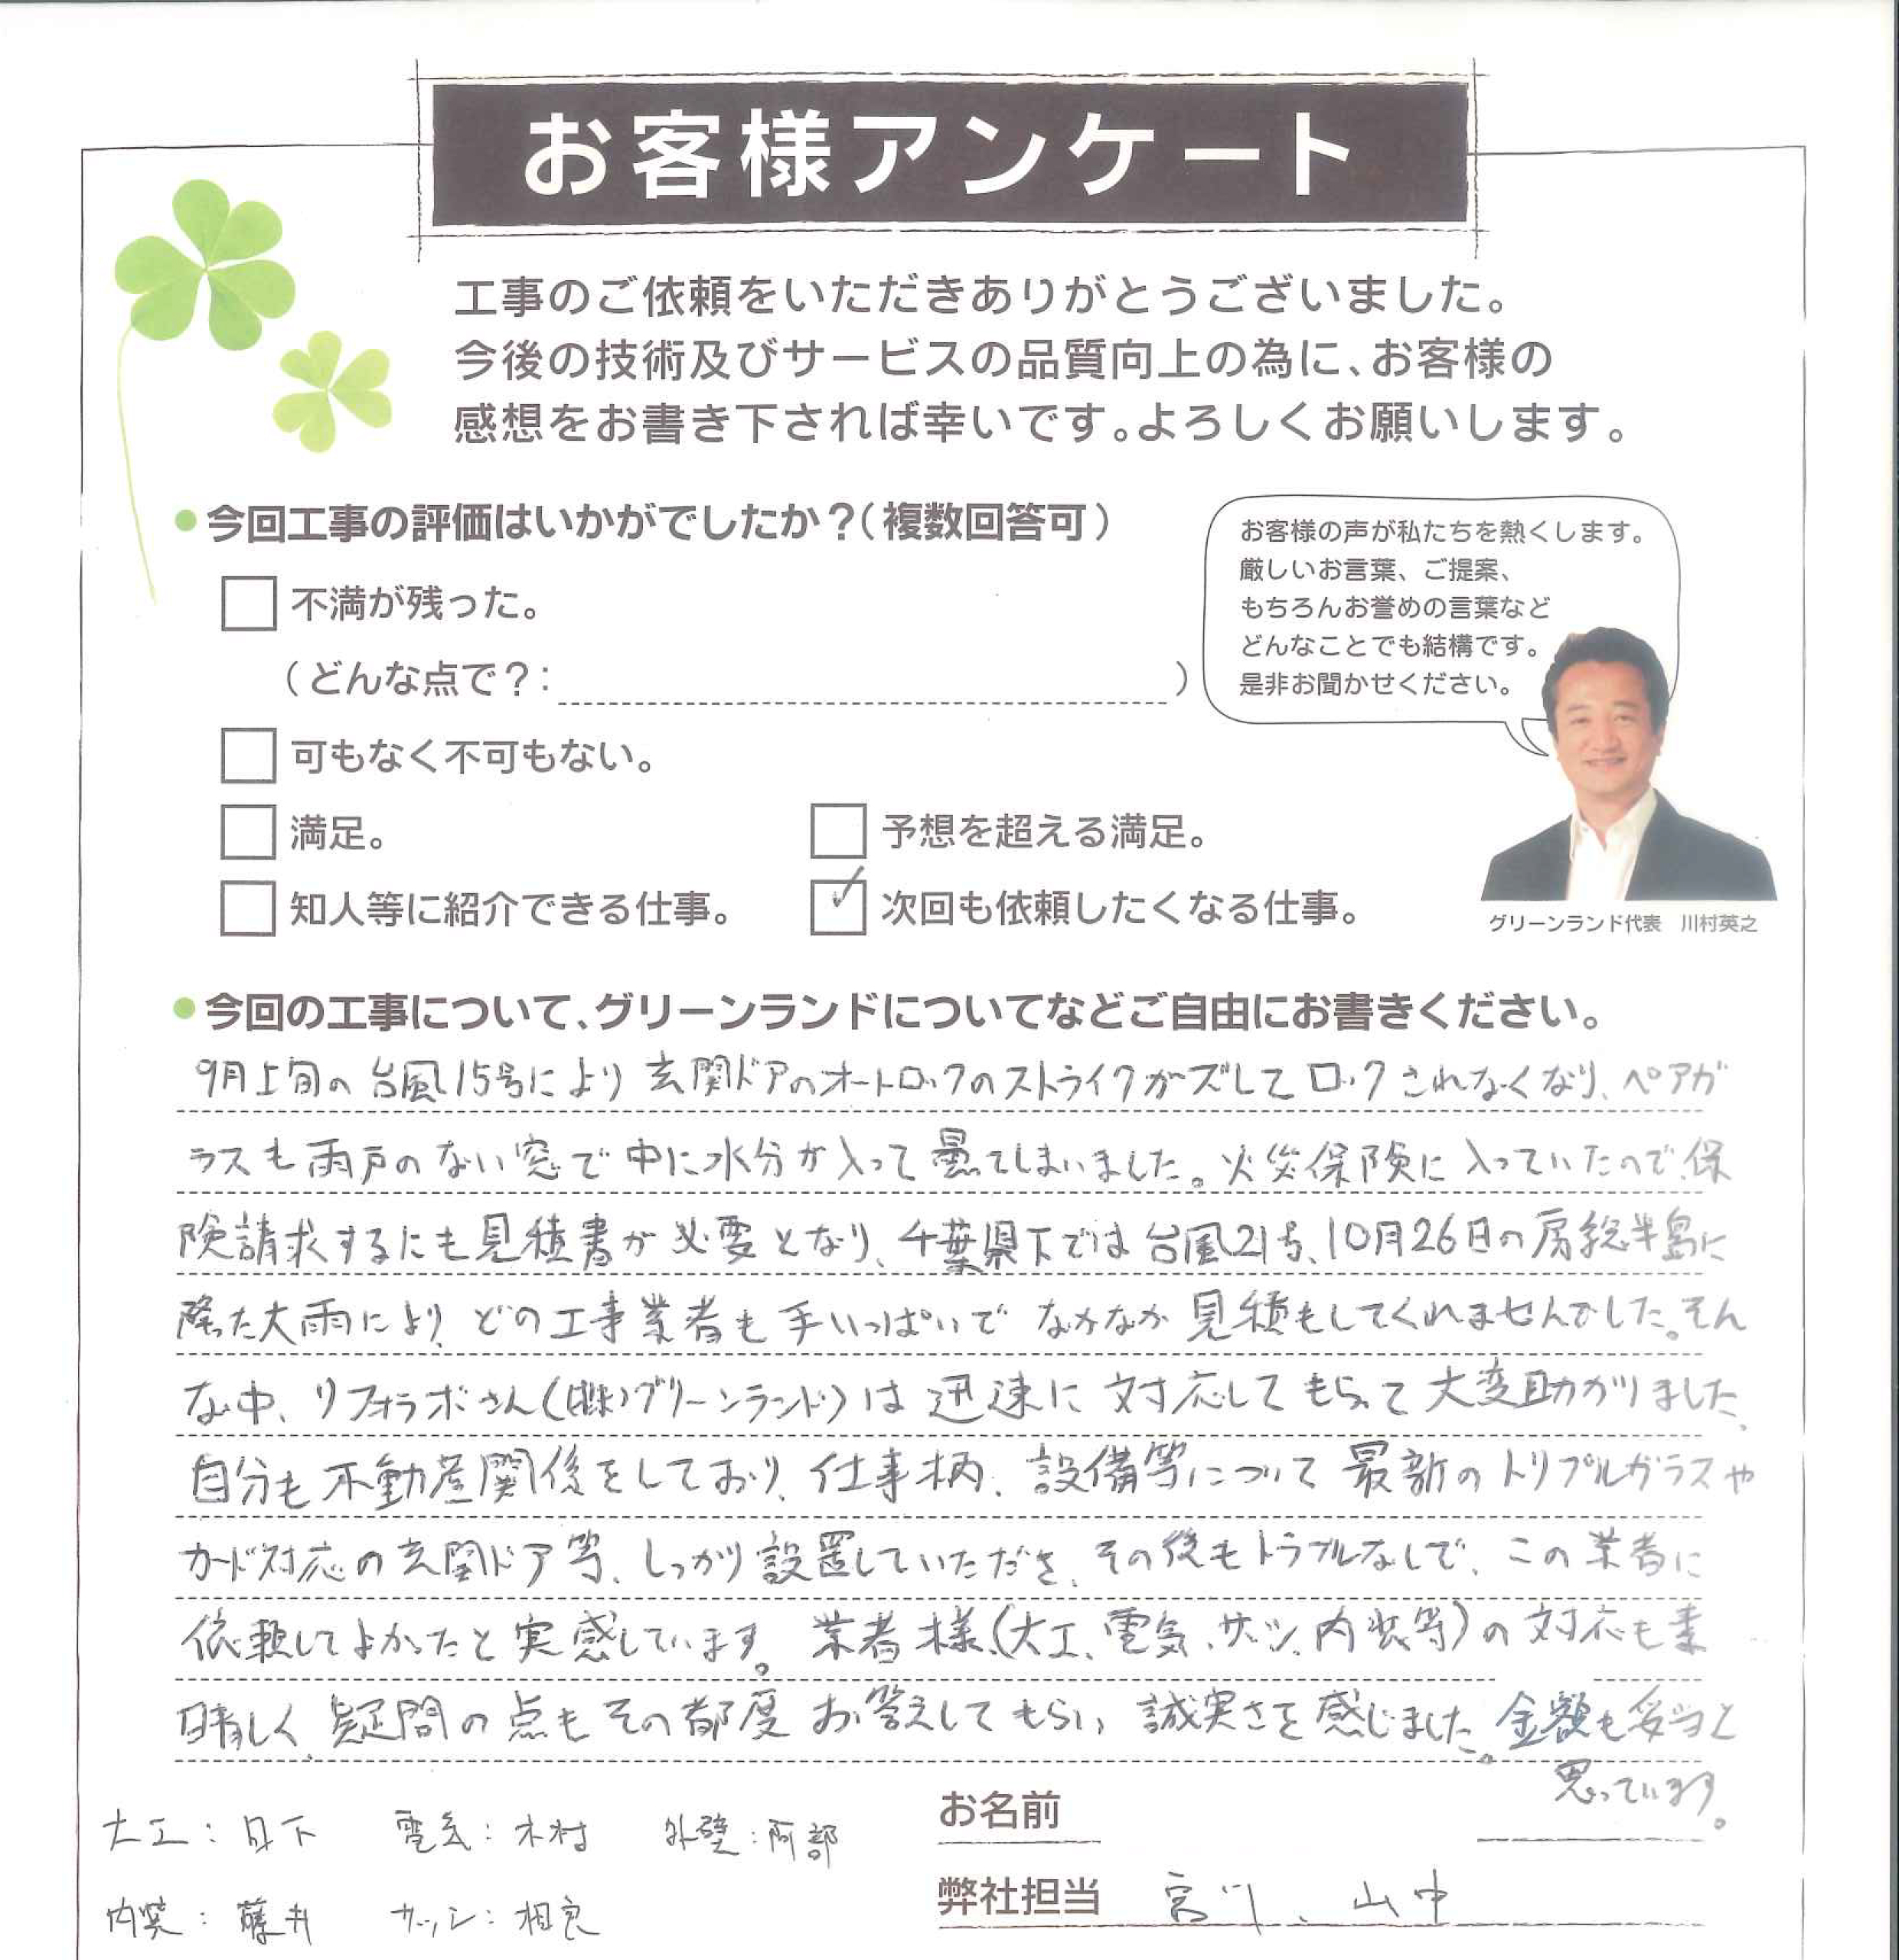 お客様アンケート
工事のご依頼をいただきありがとうございました。
今後の技術及びサービスの品質向上の為に、お客様の
感想をお書き下されば幸いです。よろしくお願いします。
●今回工事の評価はいかがでしたか？(複数回答可)
不満が残った。
(どんな点で？: )
可もなく不可もない。
満足。
予想を超える満足。
知人等に紹介できる仕事。
✓ 次回も依頼したくなる仕事。
お客様の声が私たちを熱くします。
厳しいお言葉、ご提案、
もちろんお誉めの言葉など
どんなことでも結構です。
是非お聞かせください。
グリーンランド代表 川村英之
●今回の工事について、グリーンランドについてなどご自由にお書きください。
9月上旬の台風15号により玄関ドアのオートロックのストライクがズレてロックされなくなり、ペアガ
ラスも雨戸のない窓で中に水分が入って曇てしまいました。火災保険に入っていたので、保
険請求するにも見積書が必要となり、千葉県下では台風21号、10月26日の房総半島に
降った大雨により、どの工事業者も手いっぱいでなかなか見積もしてくれませんでした。そん
な中、リフォラボさん(㈱グリーンランド)は迅速に対応してもらって大変助かりました。
自分も不動産関係をしており、仕事柄、設備等について最新のトリプルガラスや
カード対応の玄関ドア等、しっかり設置していただき、その後もトラブルなしで、この業者に
依頼してよかったと実感しています。業者様(大工、電気、サッシ、内装等)の対応も素
晴しく、疑問の点もその都度お答えしてもらい誠実さを感じました。金額も妥当と
思っています。
大工：日下 電気：木村 外壁：阿部
内装：藤井 サッシ：相良
お名前
弊社担当 宮川、山中